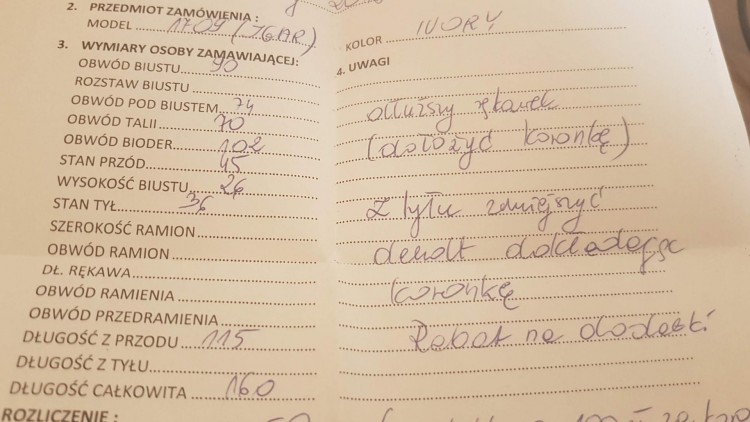 2. PRZEDMIOT ZAMÓWIENIA :
MODEL 1709 (IGAR)
KOLOR IVORY
3. WYMIARY OSOBY ZAMAWIAJĄCEJ:
OBWÓD BIUSTU 90
ROZSTAW BIUSTU
OBWÓD POD BIUSTEM 74
OBWÓD TALII 70
OBWÓD BIODER 102
STAN PRZÓD 45
WYSOKOŚĆ BIUSTU 26
STAN TYŁ 36
SZEROKOŚĆ RAMION
OBWÓD RAMION
DŁ. RĘKAWA
OBWÓD RAMIENIA
OBWÓD PRZEDRAMIENIA
DŁUGOŚĆ Z PRZODU 115
DŁUGOŚĆ Z TYŁU
DŁUGOŚĆ CAŁKOWITA 160
ROZLICZENIE :
4. UWAGI
dłuższy rękawek
(dołożyć koronkę)
z tyłu zmniejszyć
dekolt dokładając
koronkę
Rabat na dodatki